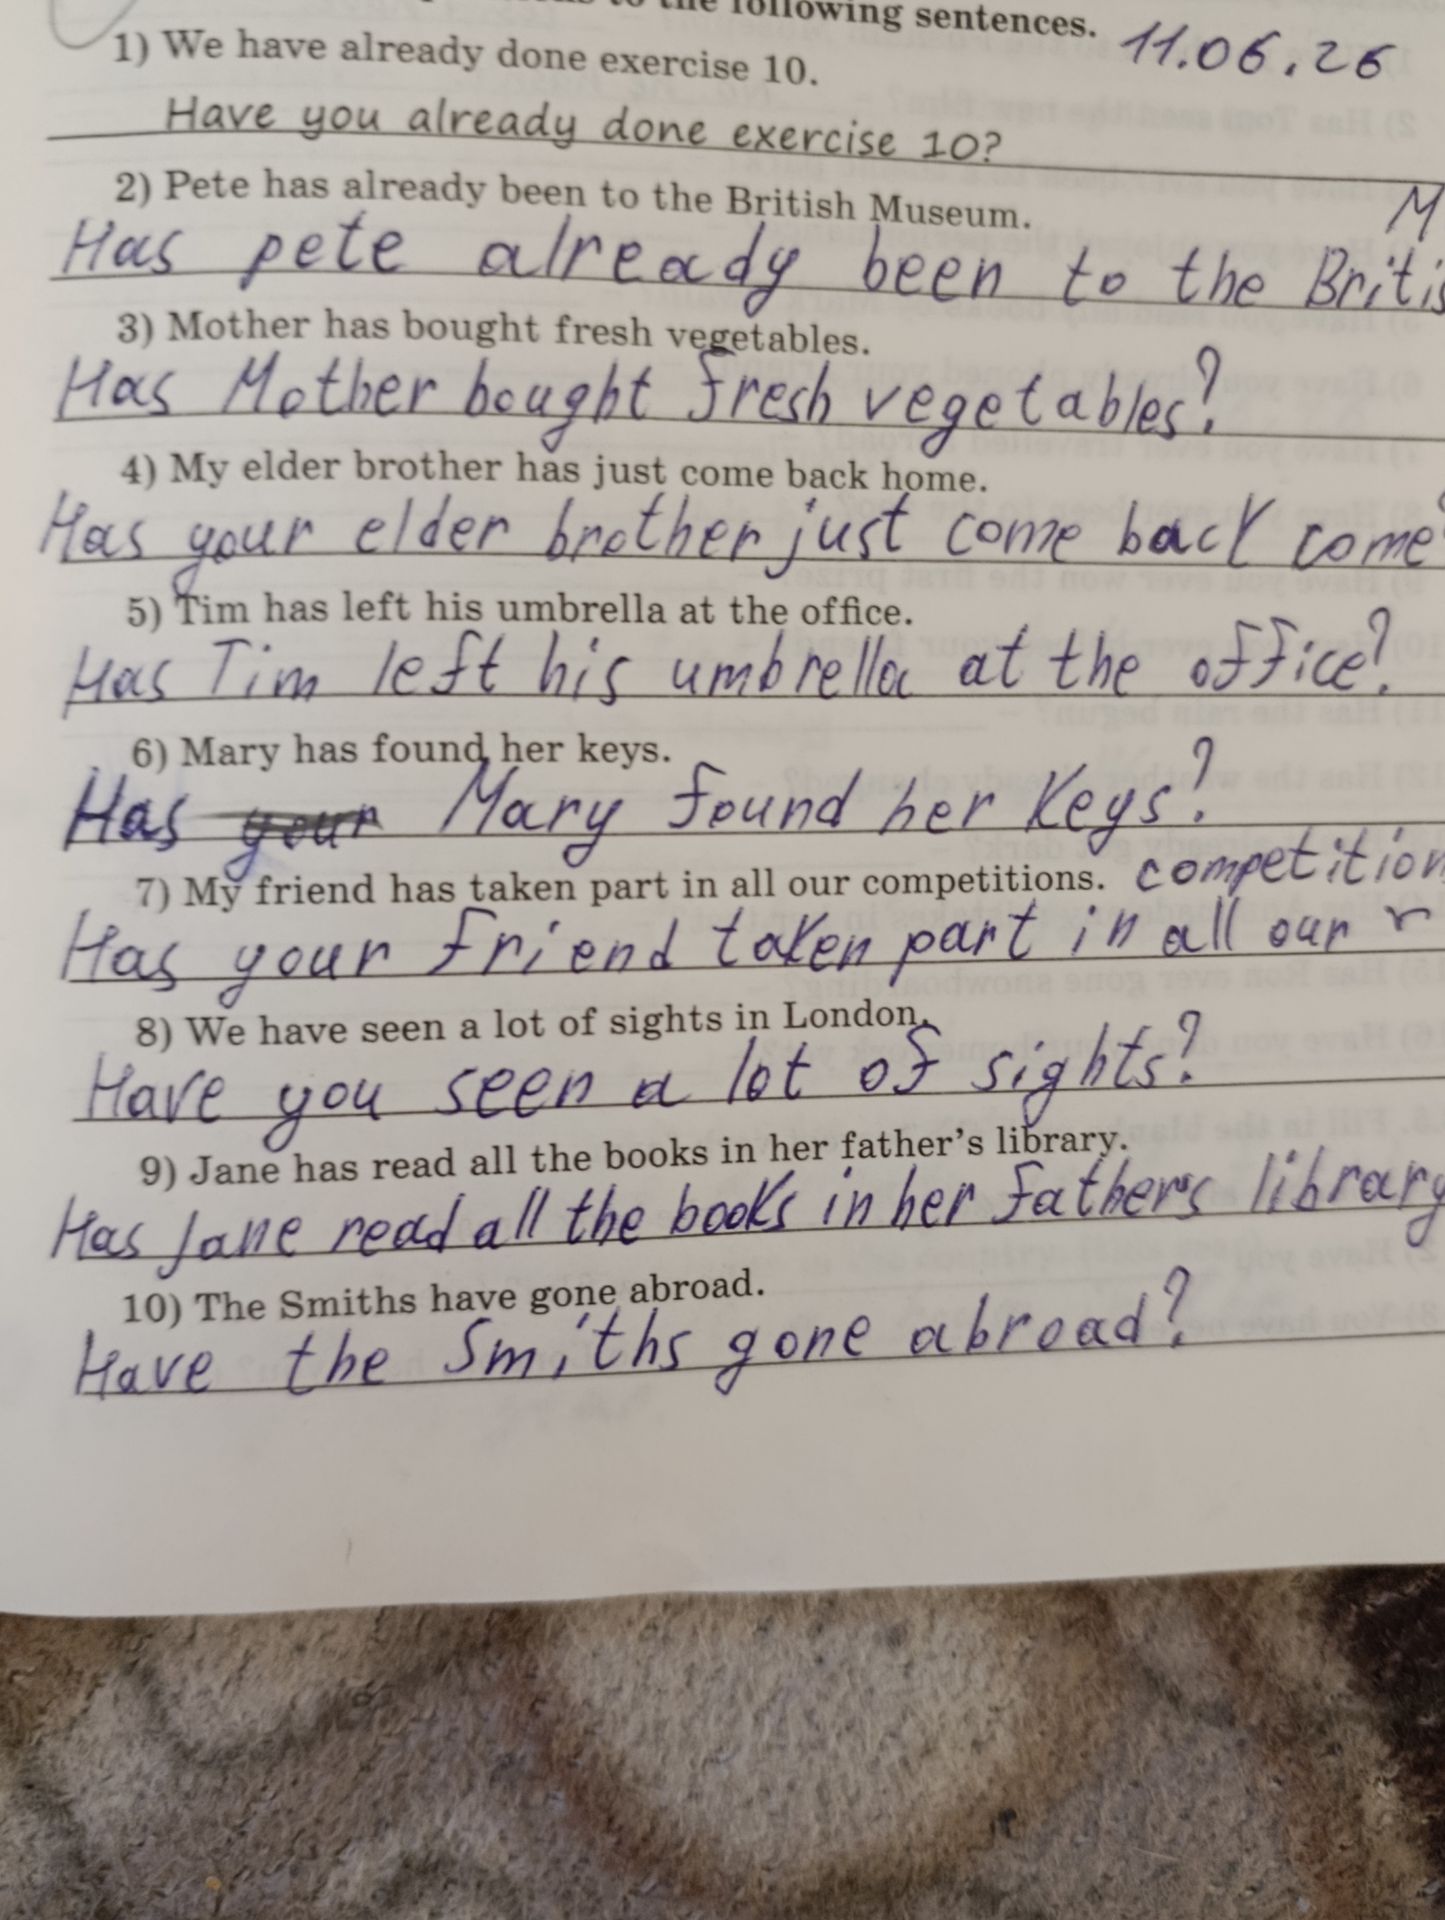 the following sentences. 11.06.26
1) We have already done exercise 10.
Have you already done exercise 10?
2) Pete has already been to the British Museum.
M
Has pete already been to the Britis
3) Mother has bought fresh vegetables.
Has Mother bought fresh vegetables?
4) My elder brother has just come back home.
Has your elder brother just come back come
5) Tim has left his umbrella at the office.
Has Tim left his umbrella at the office?
6) Mary has found her keys.
Has your Mary found her keys?
7) My friend has taken part in all our competitions. competition
Has your friend taken part in all our
8) We have seen a lot of sights in London.
Have you seen a lot of sights?
9) Jane has read all the books in her father's library.
Has Jane read all the books in her father's library
10) The Smiths have gone abroad.
Have the Smiths gone abroad?